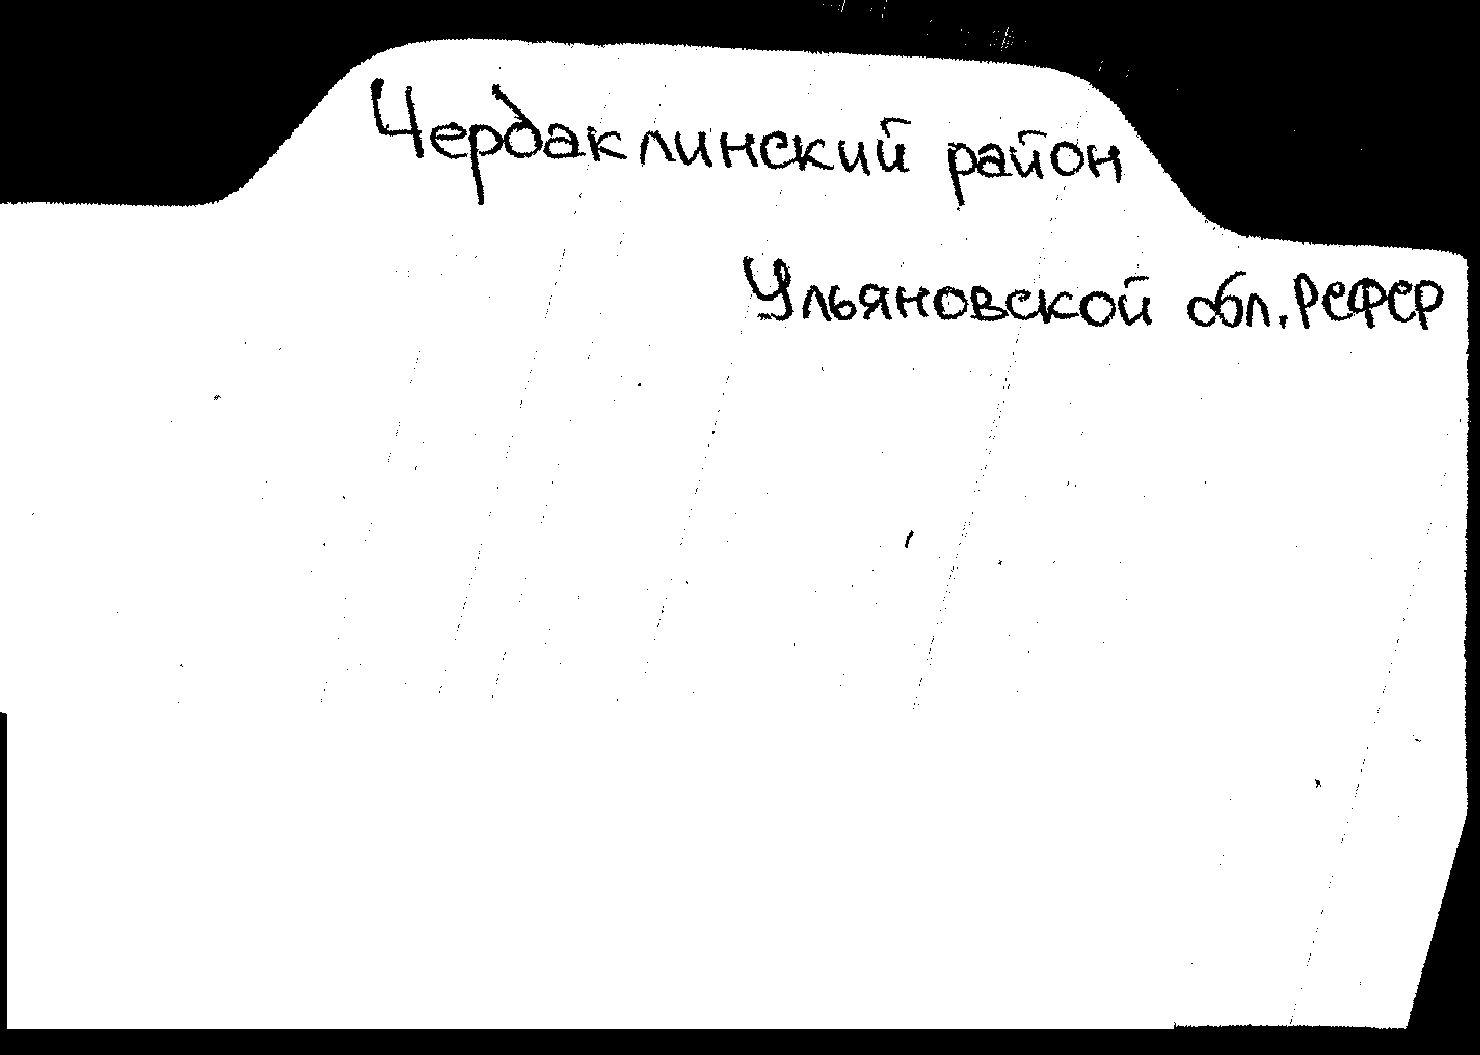 Чердаклинский район
Ульяновской обл. РСФСР